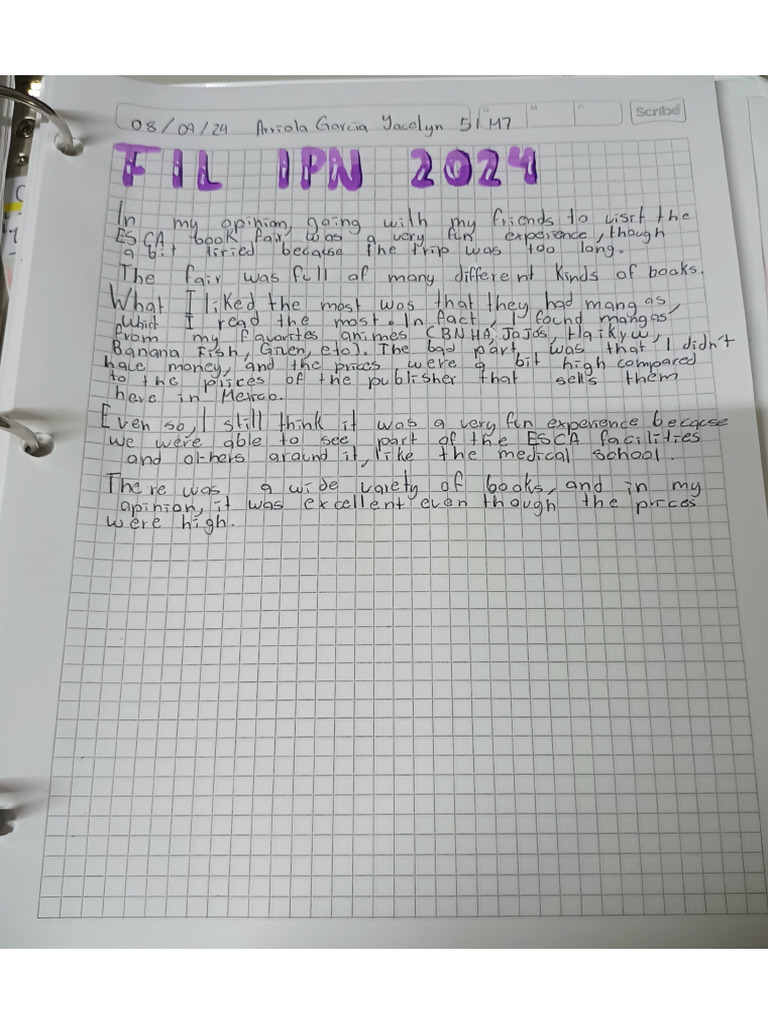 08/09/24 Arriola Garcia Yacelyn 5IM7
D M A
Scribe
FIL IPN 2024
In my opinion, going with my friends to visit the
ESCA book fair was a very fun experience, though
a bit tiried because the trip was too long.
The fair was full of many different kinds of books.
What I liked the most was that they had mangas,
whict I read the most. In fact, I found mangas
from my favorites animes (BNHA, JoJos, Haikyu,
Banana Fish, Given, etc). The bad part was that I didn't
have money, and the prices were a bit high compared
to the prices of the publisher that sells them
here in Mexico.
Even so, I still think it was a very fun experience because
we were able to see part of the ESCA facilities
and others around it, like the medical school.
There was a wide varety of books, and in my
opinion, it was excellent even though the prices
were high.